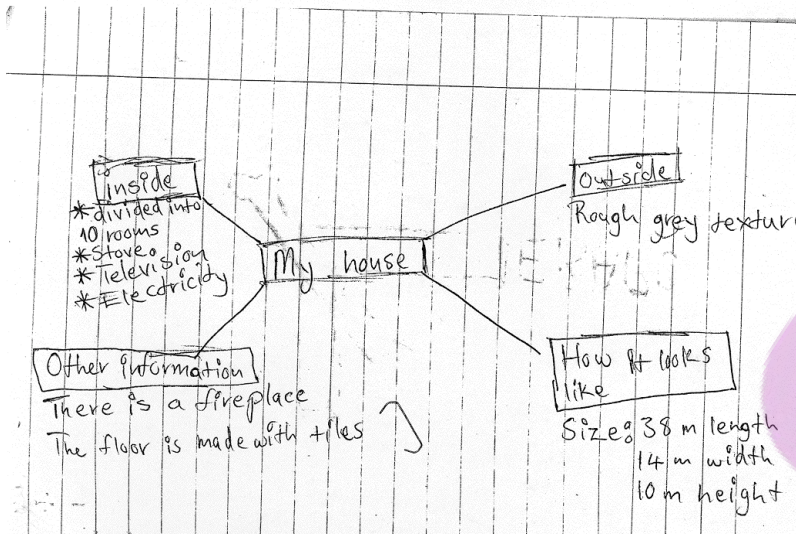 inside
*divided into
10 rooms
*Stove
*Television
*Electricity
Outside
Rough grey textur
My house
Other information
There is a fireplace
The floor is made with tiles
How it looks
like
Size: 38 m length
14 m width
10 m height